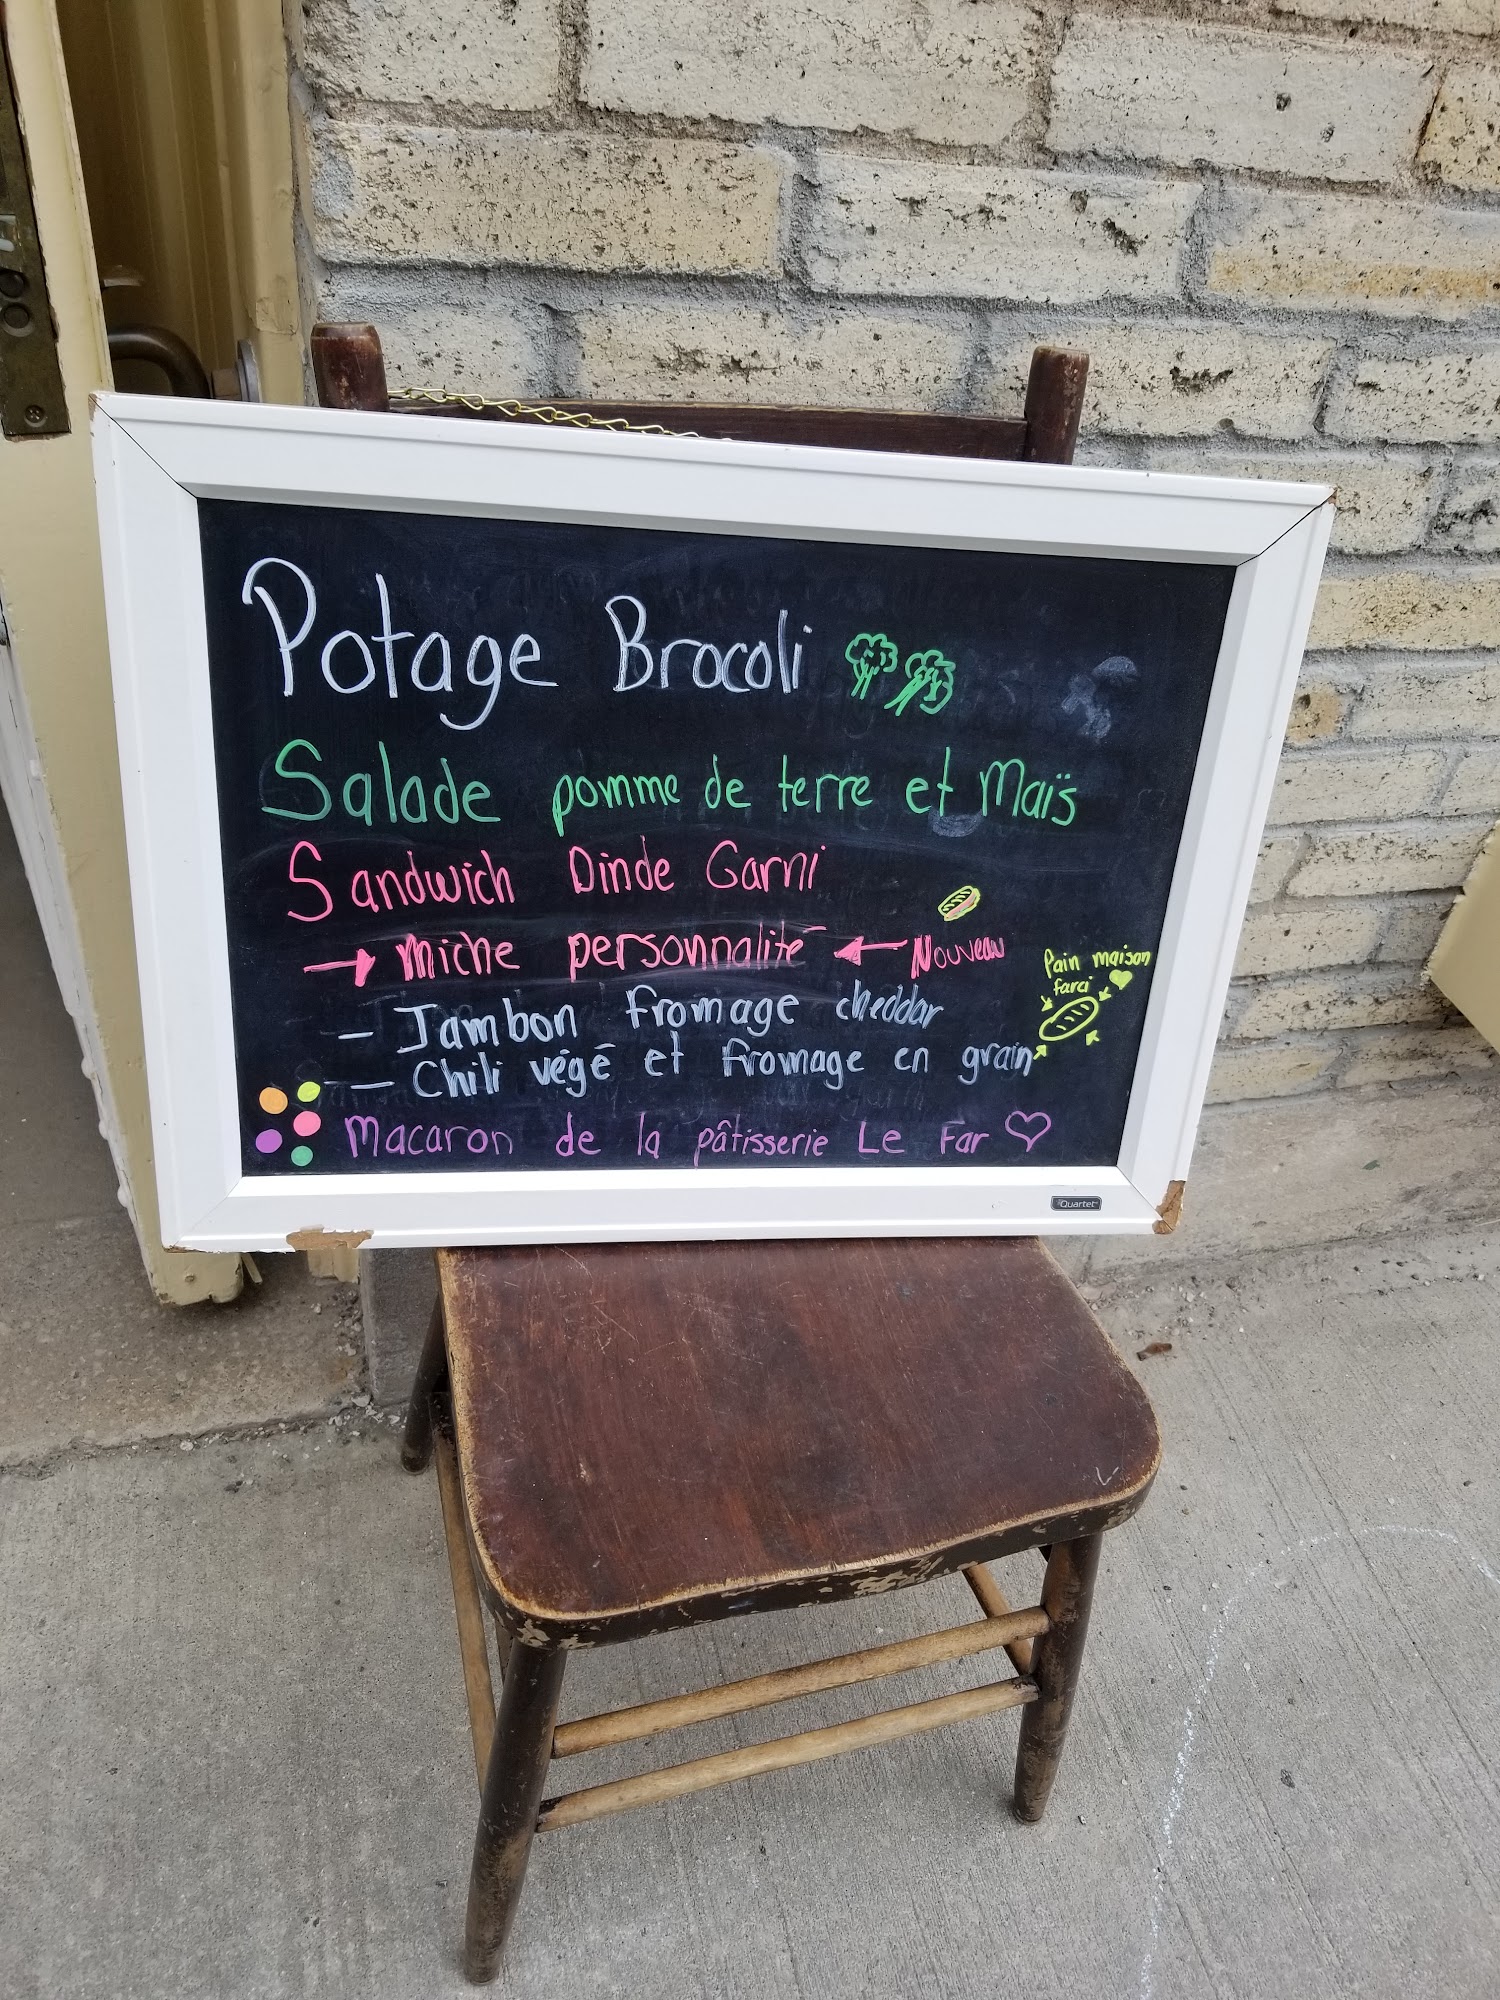 Potage Brocoli
Salade pomme de terre et Maïs
Sandwich Dinde Garni
→ miche personnalité ← Nouveau
Pain maison
farci
- Jambon fromage cheddar
- Chili végé et fromage en grain
Macaron de la pâtisserie Le Far
Quartet